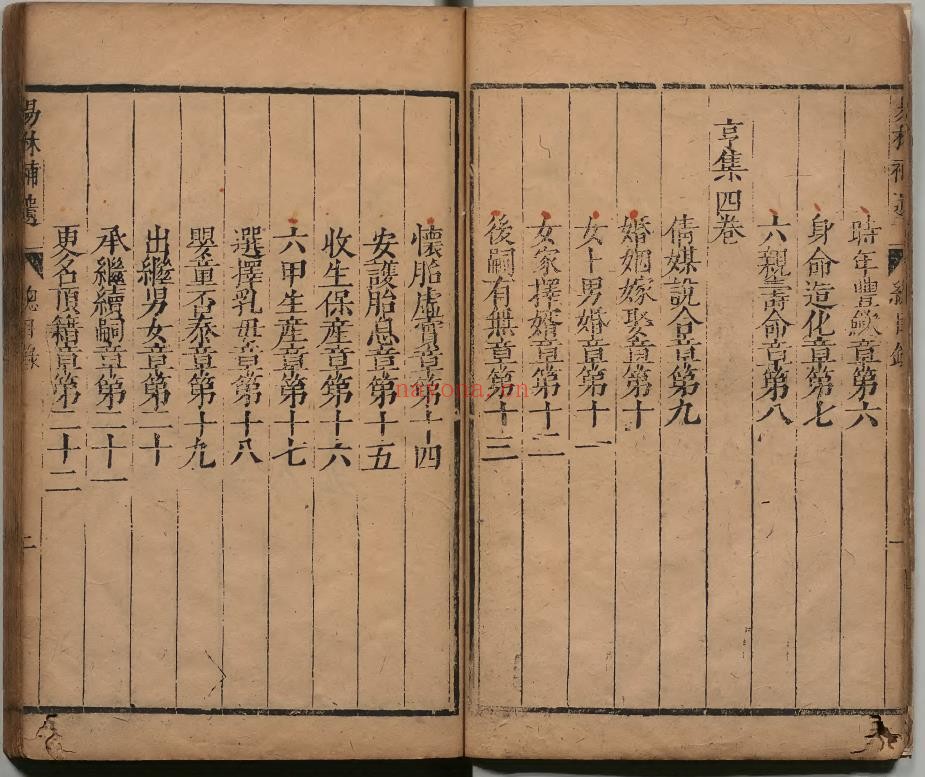 時年豐歉章第六
身命造化章第七
六親壽命章第八
亨集四卷
倩媒說合章第九
婚姻嫁娶章第十
女卜男婚章第十一
女家擇婿章第十二
後嗣有無章第十三
懷胎虛實章第十四
安護胎息章第十五
收生保產章第十六
六甲生產章第十七
選擇乳母章第十八
嬰童否泰章第十九
出繼男女章第二十
承繼續嗣章第二十一
更名頂籍章第二十二
易林補遺 總目錄 一
易林補遺 總目錄 二
nayona.cn